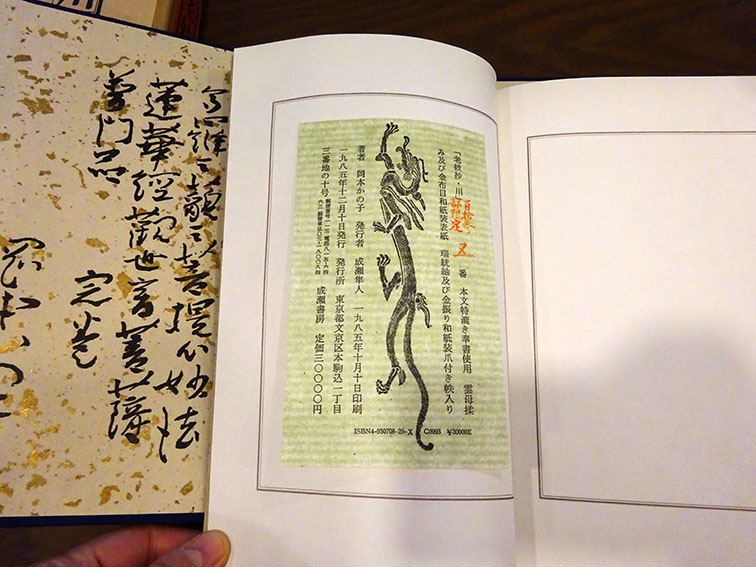 「老妓抄・川」
百拾部限定 五 番 本文特漉き奉書使用 雲母揉
み及び金布目和紙装表紙 瑞絨紬及び金振り和紙装爪付き帙入り
著者 岡本かの子 発行者 成瀬隼人 一九八五年十月十日印刷
一九八五年十二月十日発行 発行所 東京都文京区本駒込一丁目
三番地の十号 郵便番号一一三 電話八一五・六四
六三 振替東京〇三一八〇〇八四 成瀬書房 定価三〇〇〇〇円
ISBN4-930708-29-X C0093 ¥30000E
蓮華経観世音菩薩
普門品